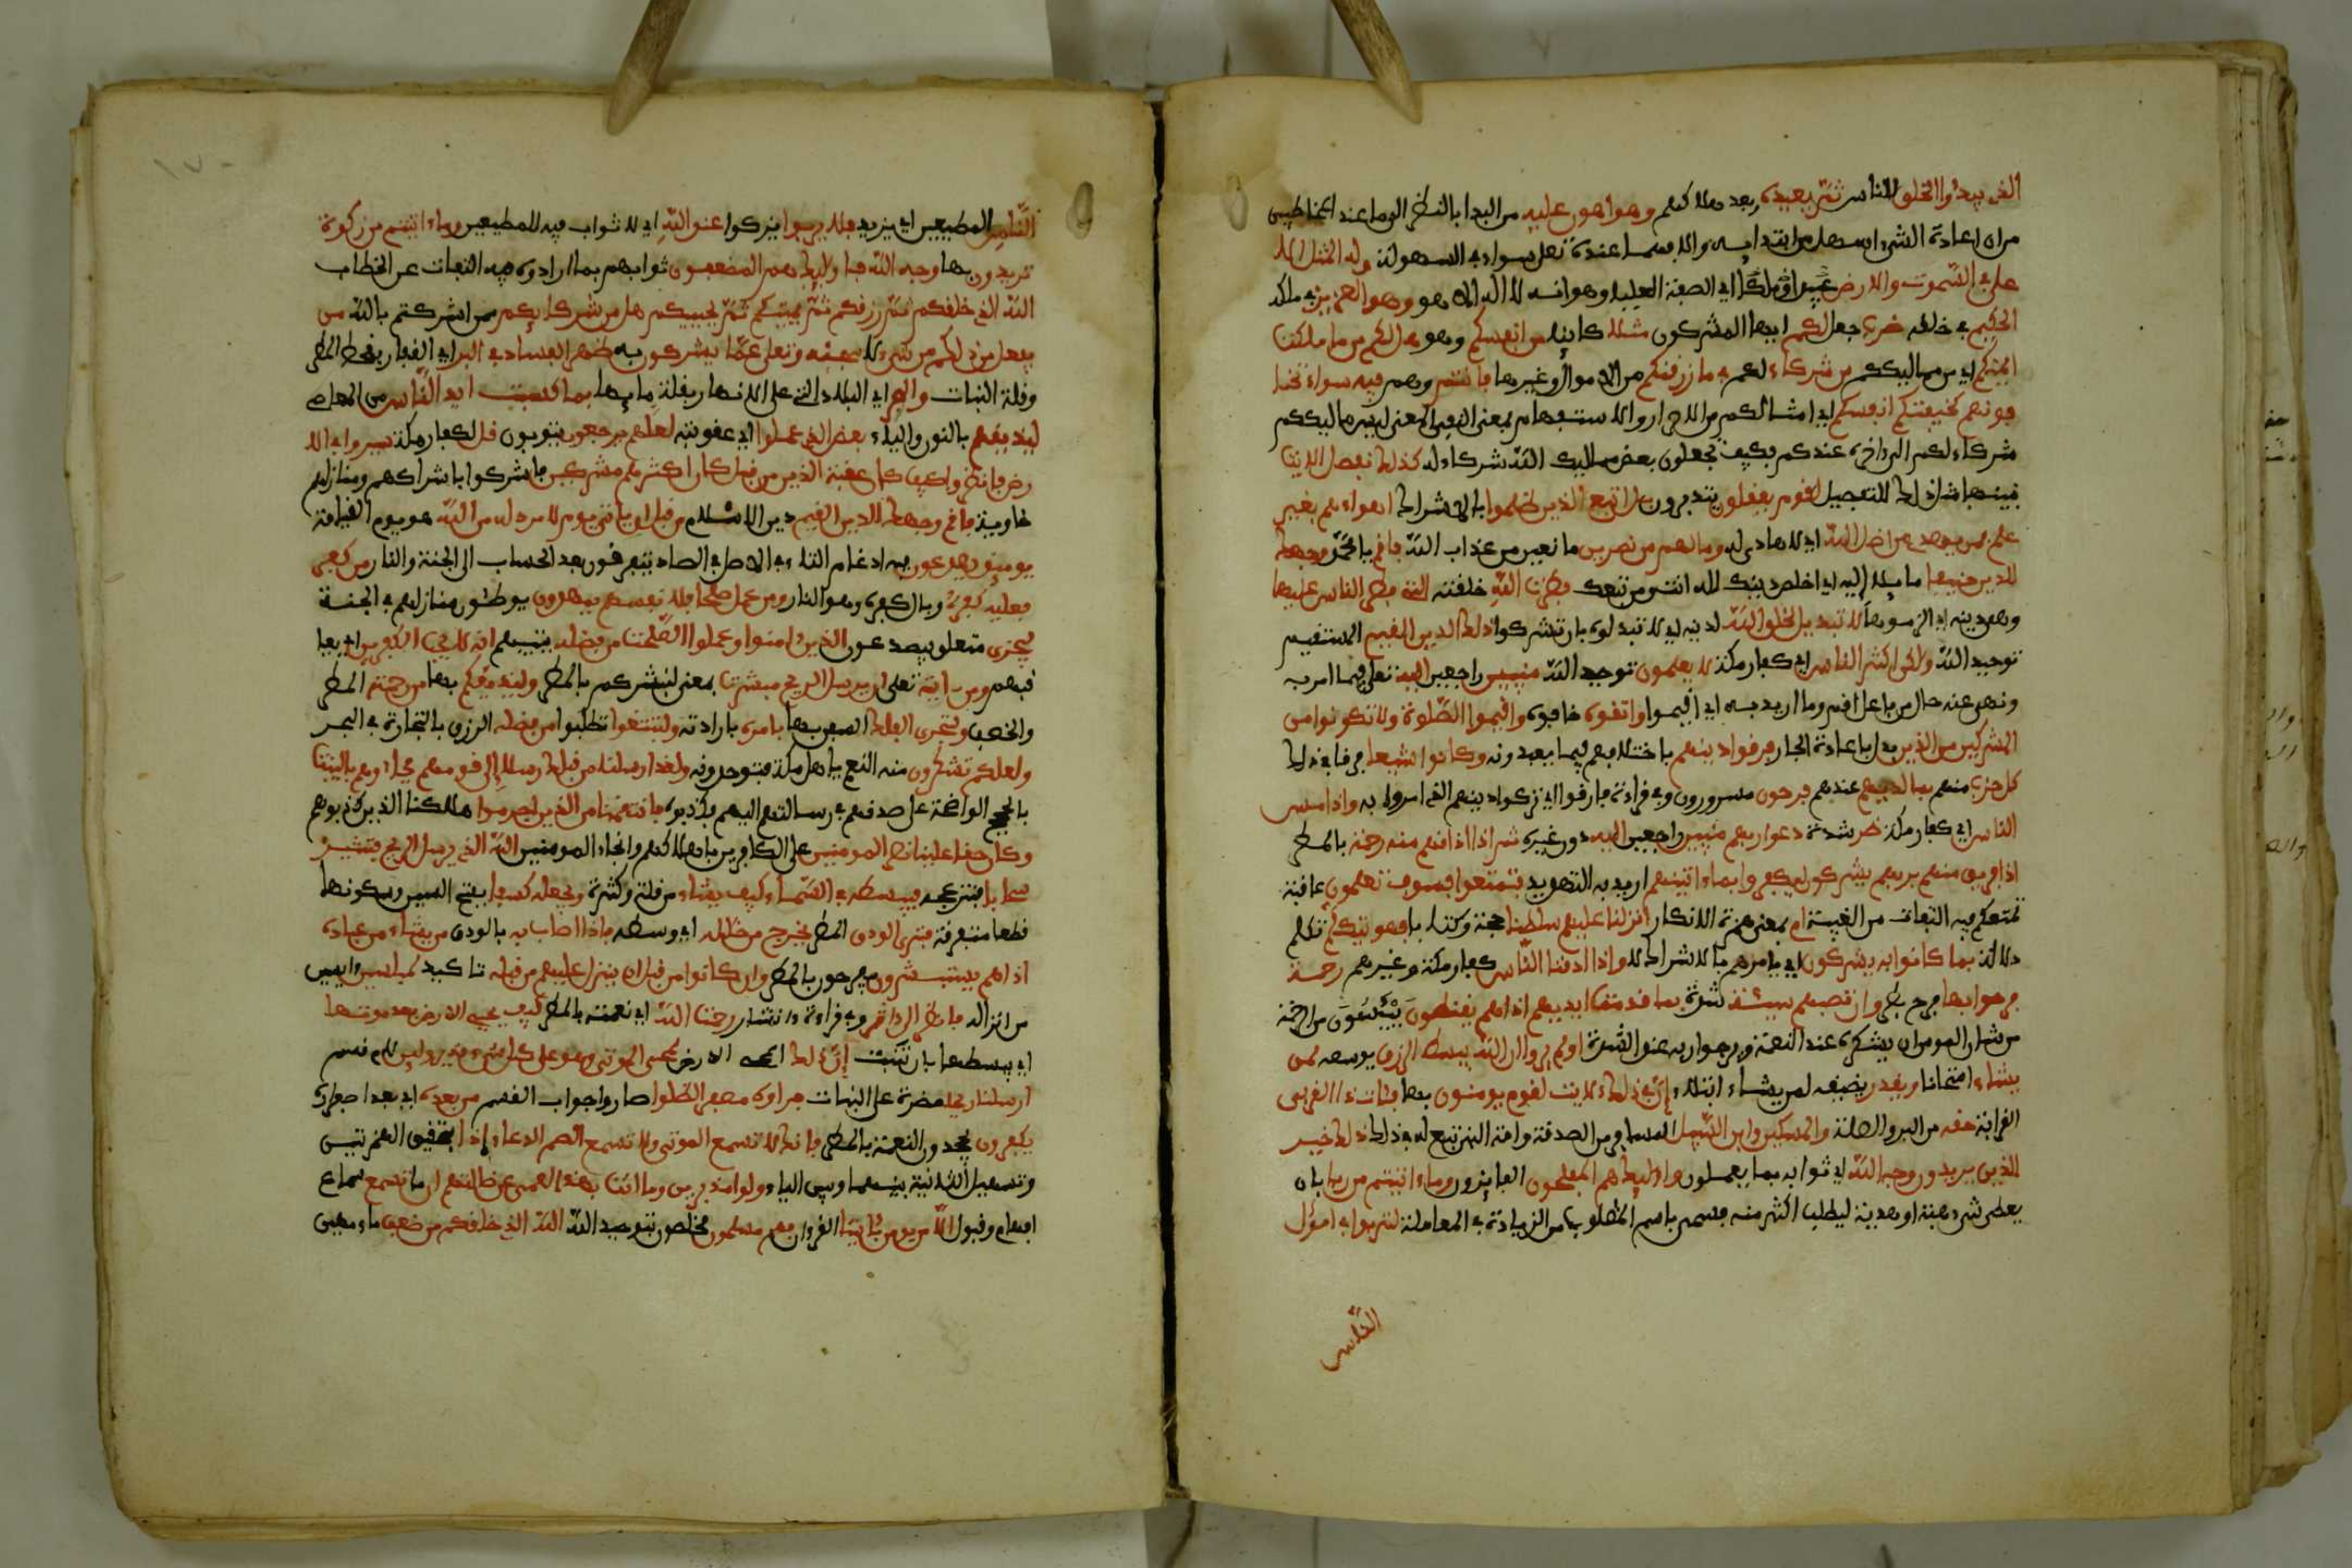 الذي يبدؤا الخلق للناس ثم يعيده بعد هلاكهم وهو اهون عليه من البدا بالنظر الى ما عند المخاطبين
من ان اعادة الشيء اسهل من ابتدايه والا فهما عنده تعلى سواء في السهولة وله المثل الا
على في السموت والارض اي الصفة العليا وهو انه لا اله الا هو وهو العزيز في ملكه
الحكيم في خلقه ضرب جعل لكم ايها المشركون مثلا كاينا من انفسكم وهو هل لكم من ما ملكت
ايمنكم اي من مماليككم من شركاء لكم في ما رزقنكم من الاموال وغيرها فانتم وهم فيه سواء تخا
فونهم كخيفتكم انفسكم اي امثالكم من الاحرار والاستفهام بمعنى النفي المعنى ليس مماليككم
شركاء لكم الى اخره عندكم فكيف تجعلون بعض مماليك الله شركاء له كذلك نفصل الايت
نبينها مثل ذلك التفصيل لقوم يعقلون يتدبرون بل اتبع الذين ظلموا بالاشراك اهواءهم بغير
علم فمن يهدي من اضل الله اي لا هادي له وما لهم من نصرين مانعين من عذاب الله فاقم يا محمد وجهك
للدين حنيفا مايلا اليه اي اخلص دينك لله انت ومن تبعك فطرت الله خلقته التي فطر الناس عليها
وهي دينه اي الزموها لا تبديل لخلق الله لدينه اي لا تبدلوه بان تشركوا ذلك الدين القيم المستقيم
توحيد الله ولكن اكثر الناس اي كفار مكة لا يعلمون توحيد الله منيبين راجعين اليه تعلى فيما امر به
ونهى عنه حال من فاعل اقم وما اريد به اي اقيموا واتقوه خافوه واقيموا الصلوة ولا تكونوا من
المشركين من الذين بدل باعادة الجار فرقوا دينهم باختلافهم فيما يعبدونه وكانوا شيعا فرقا في ذلك
كل حزب منهم بما لديهم عندهم فرحون مسرورون وفي قراءة فارقوا اي تركوا دينهم الذي امروا به واذا مس
الناس اي كفار مكة ضر شدة دعوا ربهم منيبين راجعين اليه دون غيره ثم اذا اذاقهم منه رحمة بالمطر
اذا فريق منهم بربهم يشركون ليكفروا بما ءاتينهم اريد به التهديد فتمتعوا فسوف تعلمون عاقبة
تمتعكم فيه التفات من الغيبة ام بمعنى همزة الانكار انزلنا عليهم سلطنا حجة وكتابا فهو يتكلم تكلم
دلالة بما كانوا به يشركون اي يامرهم بالاشراك لا واذا اذقنا الناس كفار مكة وغيرهم رحمة
فرحوا بها فرح بطر وان تصبهم سيئة شدة بما قدمت ايديهم اذا هم يقنطون ييئسون من الرحمة
من شان المومن ان يشكر عند النعمة ويرجوا ربه عند الشدة اولم يروا ان الله يبسط الرزق يوسعه لمن
يشاء امتحانا ويقدر يضيقه لمن يشاء ابتلاء ان في ذلك لايت لقوم يومنون بها فئات ذا القربى
القرابة حقه من البر والصلة والمسكين وابن السبيل المسافر من الصدقة وامة النبي تبع له في ذلك ذلك خير
للذين يريدون وجه الله اي ثوابه بما يعملون واوليك هم المفلحون الفايزون وما ءاتيتم من ربا بان
يعطى شيء هبة او هدية ليطلب اكثر منه فسمي باسم المطلوب من الزيادة في المعاملة لتربوا في امول
الناس
الناس المطيعين اي يزيد فلا يربوا يزكوا عند الله اي لا ثواب فيه للمطيعين وما ءاتيتم من زكوة
تريدون بها وجه الله فاوليك هم المضعفون ثوابهم بما ارادوه فيه التفات عن الخطاب
الله الذي خلقكم ثم رزقكم ثم يميتكم ثم يحييكم هل من شركايكم ممن اشركتم بالله من
يفعل من ذلكم من شيء لا سبحنه وتعلى عما يشركون به ظهر الفساد في البر اي القفار بقحط المطر
وقلة النبات والبحر اي البلاد التي على الانهار بقلة مايها بما كسبت ايد الناس من المعاصي
ليذيقهم بالنون والياء بعض الذي عملوا اي عقوبته لعلهم يرجعون يتوبون قل لكفار مكة سيروا في الا
رض فانظروا كيف كان عقبة الذين من قبل كان اكثرهم مشركين فاهلكوا باشراكهم ومنازلهم
خاوية فاقم وجهك للدين القيم دين الاسلام من قبل ان ياتي يوم لا مرد له من الله هو يوم القيامة
يوميذ يصدعون فيه ادغام التاء في الاصل في الصاد يتفرقون بعد الحساب الى الجنة والنار من كفر
فعليه كفره وبال كفره وهو النار ومن عمل صلحا فلانفسهم يمهدون يوطئون منازلهم في الجنة
ليجزي متعلق بيصدعون الذين ءامنوا وعملوا الصلحت من فضله يثيبهم انه لا يحب الكفرين اي يعا
قبهم ومن ءايته تعلى ان يرسل الريح مبشرت بمعنى لتبشركم بالمطر وليذيقكم بها من رحمته المطر
والخصب ولتجري الفلك السفن بها بامره بارادته ولتبتغوا تطلبوا من فضله الرزق بالتجارة في البحر
ولعلكم تشكرون هذه النعم يا اهل مكة فتوحدونه ولقد ارسلنا من قبلك رسلا الى قومهم فجاءوهم بالبينت
بالحجج الواضحة على صدقهم في رسالتهم اليهم فكذبوهم فانتقمنا من الذين اجرموا اهلكنا الذين كذبوهم
وكان حقا علينا نصر المومنين على الكافرين باهلاكهم وانجاء المومنين الله الذي يرسل الريح فتثير
سحابا تزعجه فيبسطه في السماء كيف يشاء من قلة وكثرة ويجعله كسفا بفتح السين وسكونها
قطعا متفرقة فترى الودق المطر يخرج من خلله اي وسطه فاذا اصاب به بالودق من يشاء من عباده
اذا هم يستبشرون يفرحون بالمطر وان كانوا من قبل ان ينزل عليهم من قبله تاكيد لمبلسين ءايسين
من انزاله فانظر الى اثر وفي قراءة ءاثار رحمت الله اي نعمته بالمطر كيف يحيي الارض بعد موتها
اي يبسطها بان تنبت ان ذلك المحيي الارض لمحيي الموتى وهو على كل شيء قدير ولين لام قسم
ارسلنا ريحا مضرة على النبات فراوه مصفرا لظلوا صاروا جواب القسم من بعده اي بعد اصفراره
يكفرون يجحدون النعمة بالمطر فانك لا تسمع الموتى ولا تسمع الصم الدعاء اذا بتحقيق الهمزتين
وتسهيل الثانية بينهما وبين الياء ولوا مدبرين وما انت بهد العمي عن ضلالتهم ان ما تسمع سماع
افهام وقبول الا من يومن بئايتنا القرءان فهم مسلمون مخلصون بتوحيد الله الله الذي خلقكم من ضعف ماء مهين